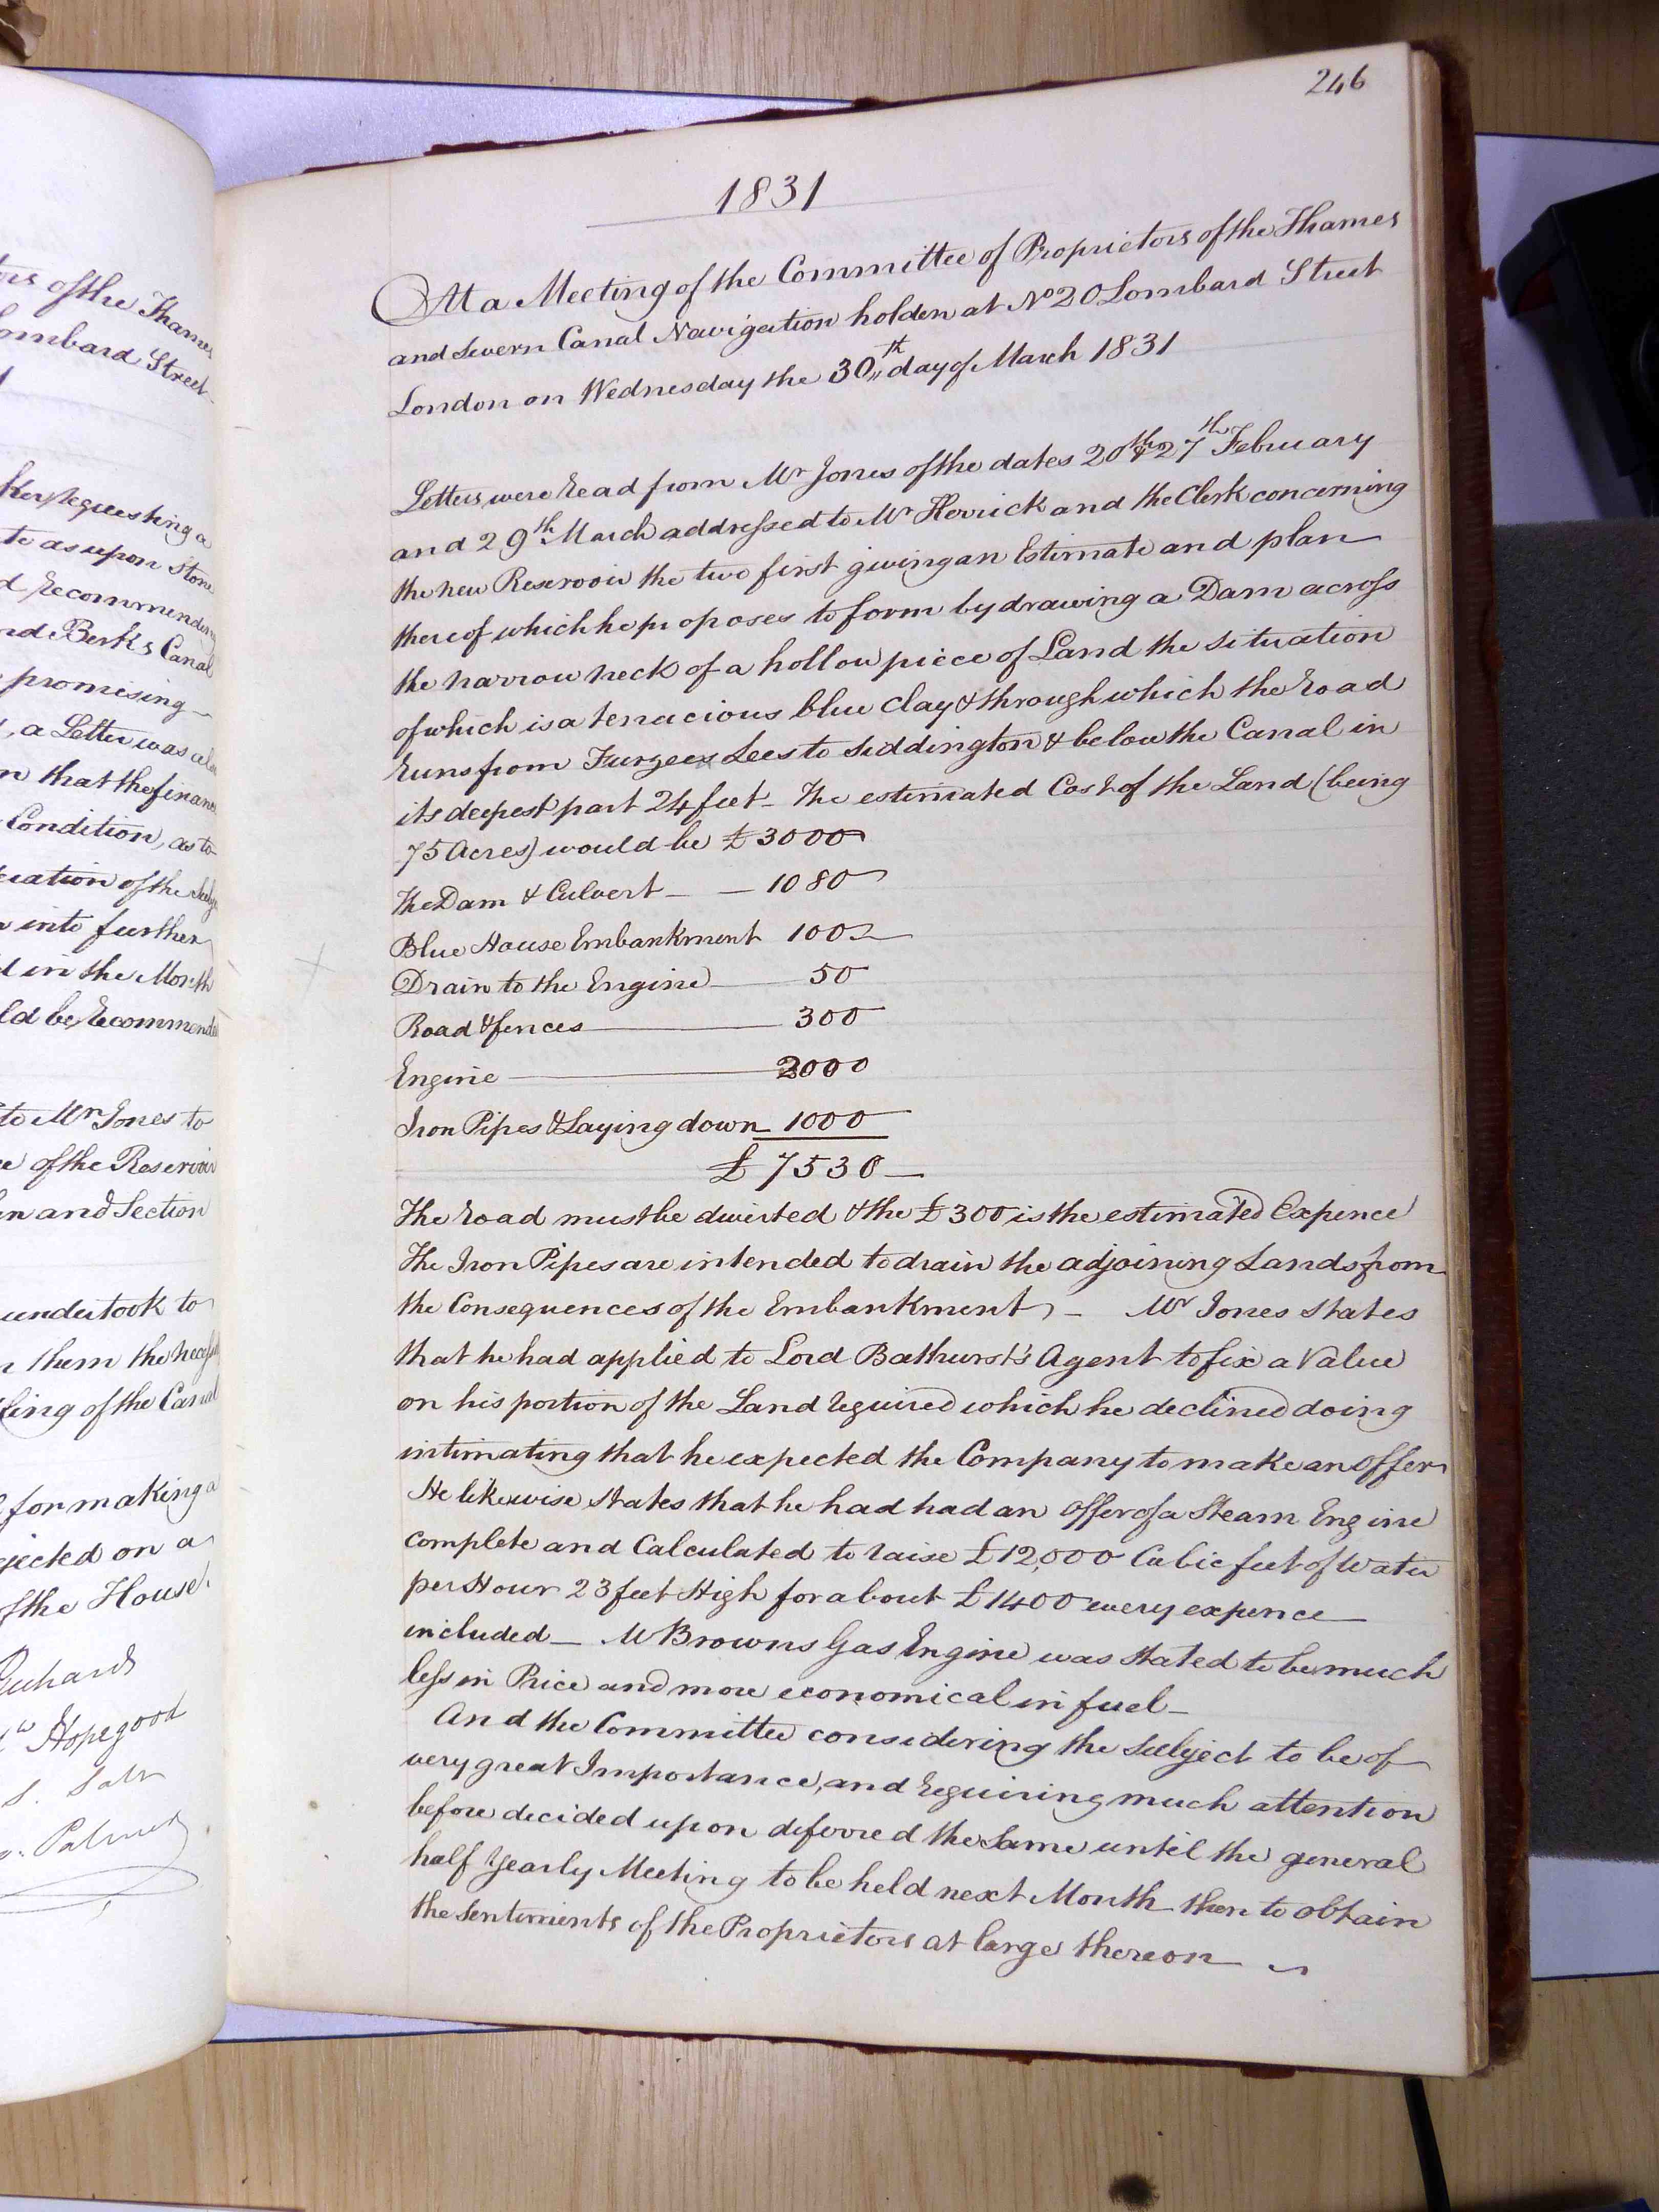 ors of the Thames
ombard Street
ker requesting a
te as upon Stone
d recommending
nd Berks Canal
promising
, a Letter was also
n that the finan
Condition, as to
ration of the
n into further
d in the Month
ld be recommende
to Mr Jones to
e of the Reservoir
n and Section
undertook to
n them the
ling of the Canal
for making a
jected on a
of the House.
Hopegood
S. Salt
Palmer
246
1831
At a Meeting of the Committee of Proprietors of the Thames
and Severn Canal Navigation holden at No 20 Lombard Street
London on Wednesday the 30th day of March 1831
Letters were read from Mr Jones of the dates 20th & 27th February
and 29th March addressed to Mr Herrick and the Clerk concerning
the new Reservoir the two first giving an Estimate and plan
thereof which he proposes to form by drawing a Dam across
the narrow neck of a hollow piece of Land the situation
of which is a tenacious blue clay & through which the road
runs from Furzen Lees to Siddington & below the Canal in
its deepest part 24 feet - The estimated Cost of the Land (being
75 Acres) would be £3000
The Dam & Culvert — — 1080
Blue House Embankment 100
Drain to the Engine — 50
Road & fences — 300
Engine — 2000
Iron Pipes & Laying down 1000
£ 7530 —
The road must be diverted & the £300 is the estimated Expence
The Iron Pipes are intended to drain the adjoining Lands from
the Consequences of the Embankment, - Mr Jones states
that he had applied to Lord Bathurst's Agent to fix a Value
on his portion of the Land required which he declined doing
intimating that he expected the Company to make an offer
He likewise states that he had had an offer of a Steam Engine
complete and Calculated to raise £12,000 Cubic feet of Water
per Hour 23 feet High for about £1400 every expence
included — Mr Browns Gas Engine was stated to be much
less in Price and more economical in fuel —
And the Committee considering the subject to be of
very great Importance, and requiring much attention
before decided upon deferred the same until the general
half Yearly Meeting to be held next Month then to obtain
the sentiments of the Proprietors at large thereon —